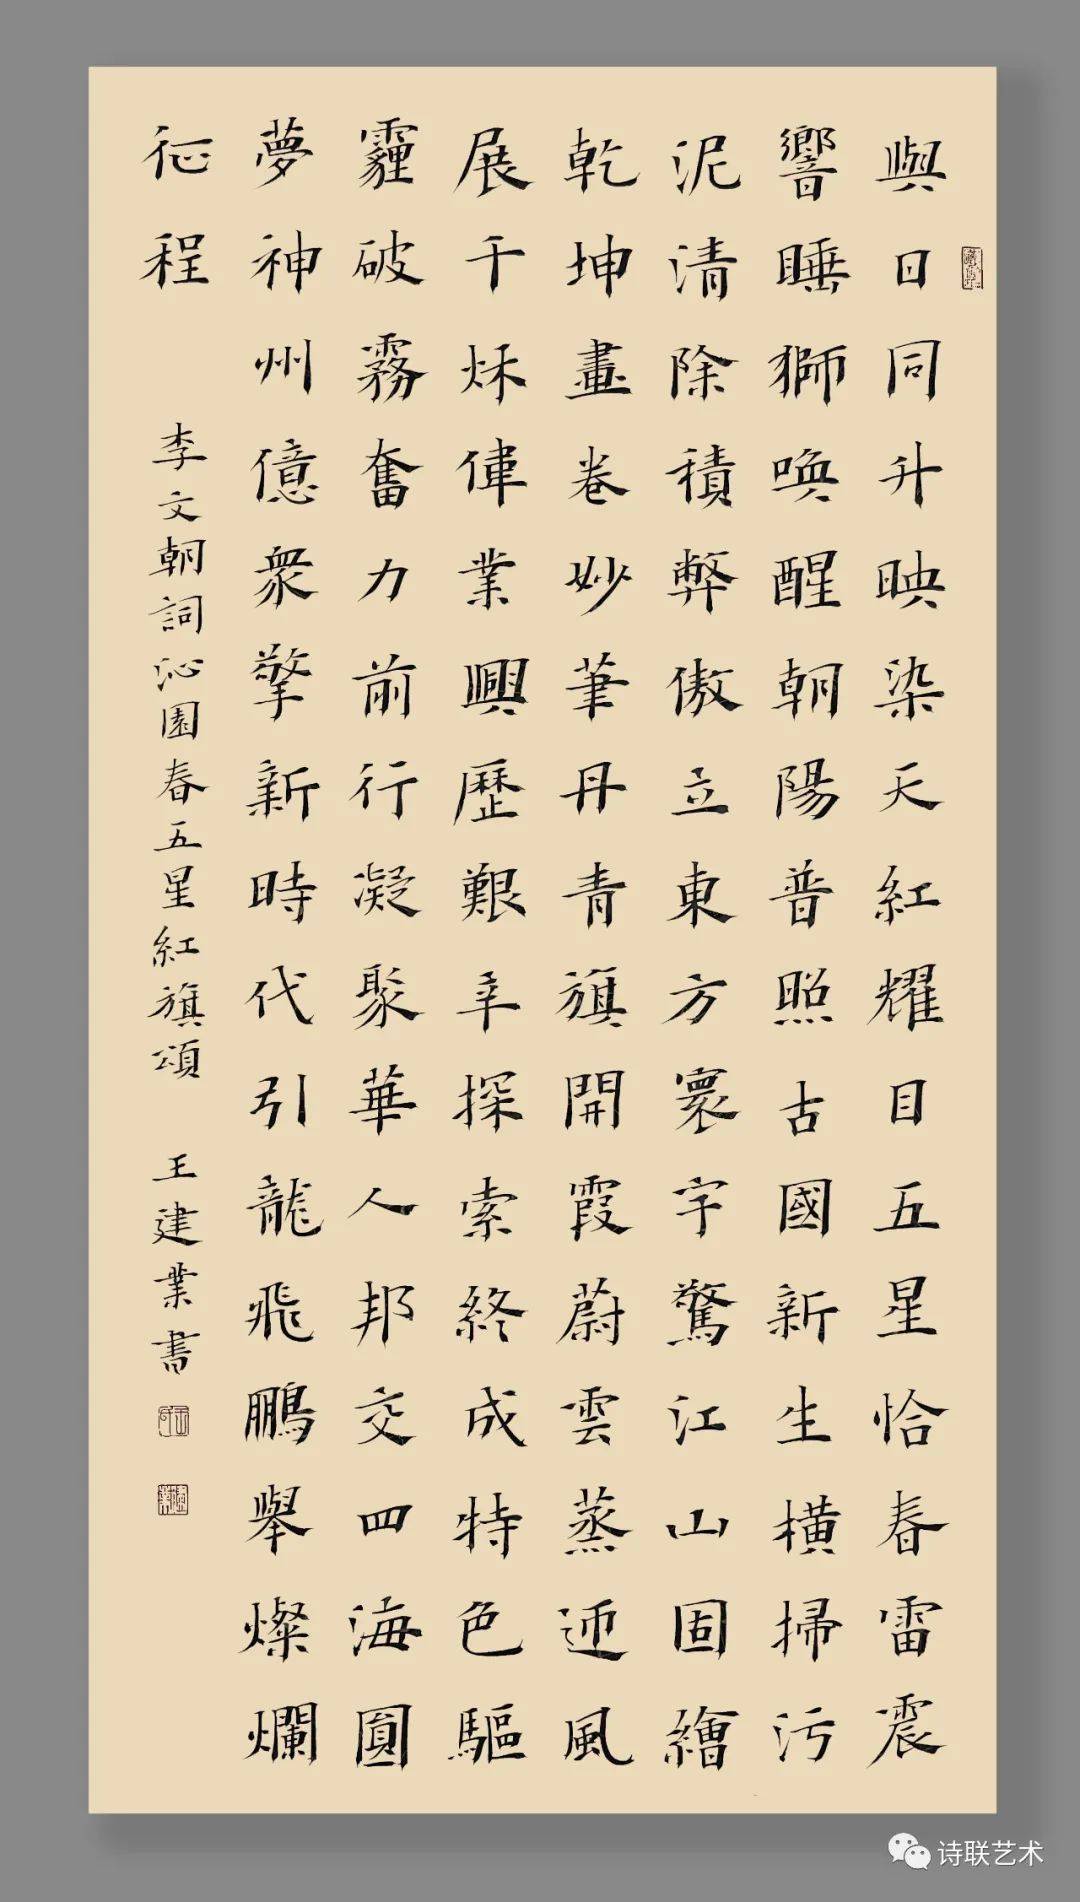 與日同升映染天紅耀目五星恰春雷震
響睡獅喚醒朝陽普照古國新生橫掃污
泥清除積弊傲立東方寰宇驚江山固繪
乾坤畫卷妙筆丹青旗開霞蔚雲蒸迎風
展千秌偉業興歷艱辛探索終成特色驅
霾破霧奮力前行凝聚華人邦交四海圓
夢神州億眾擎新時代引龍飛鵬舉燦爛
征程
李文朝詞沁園春五星紅旗頌 王建業書
诗联艺术